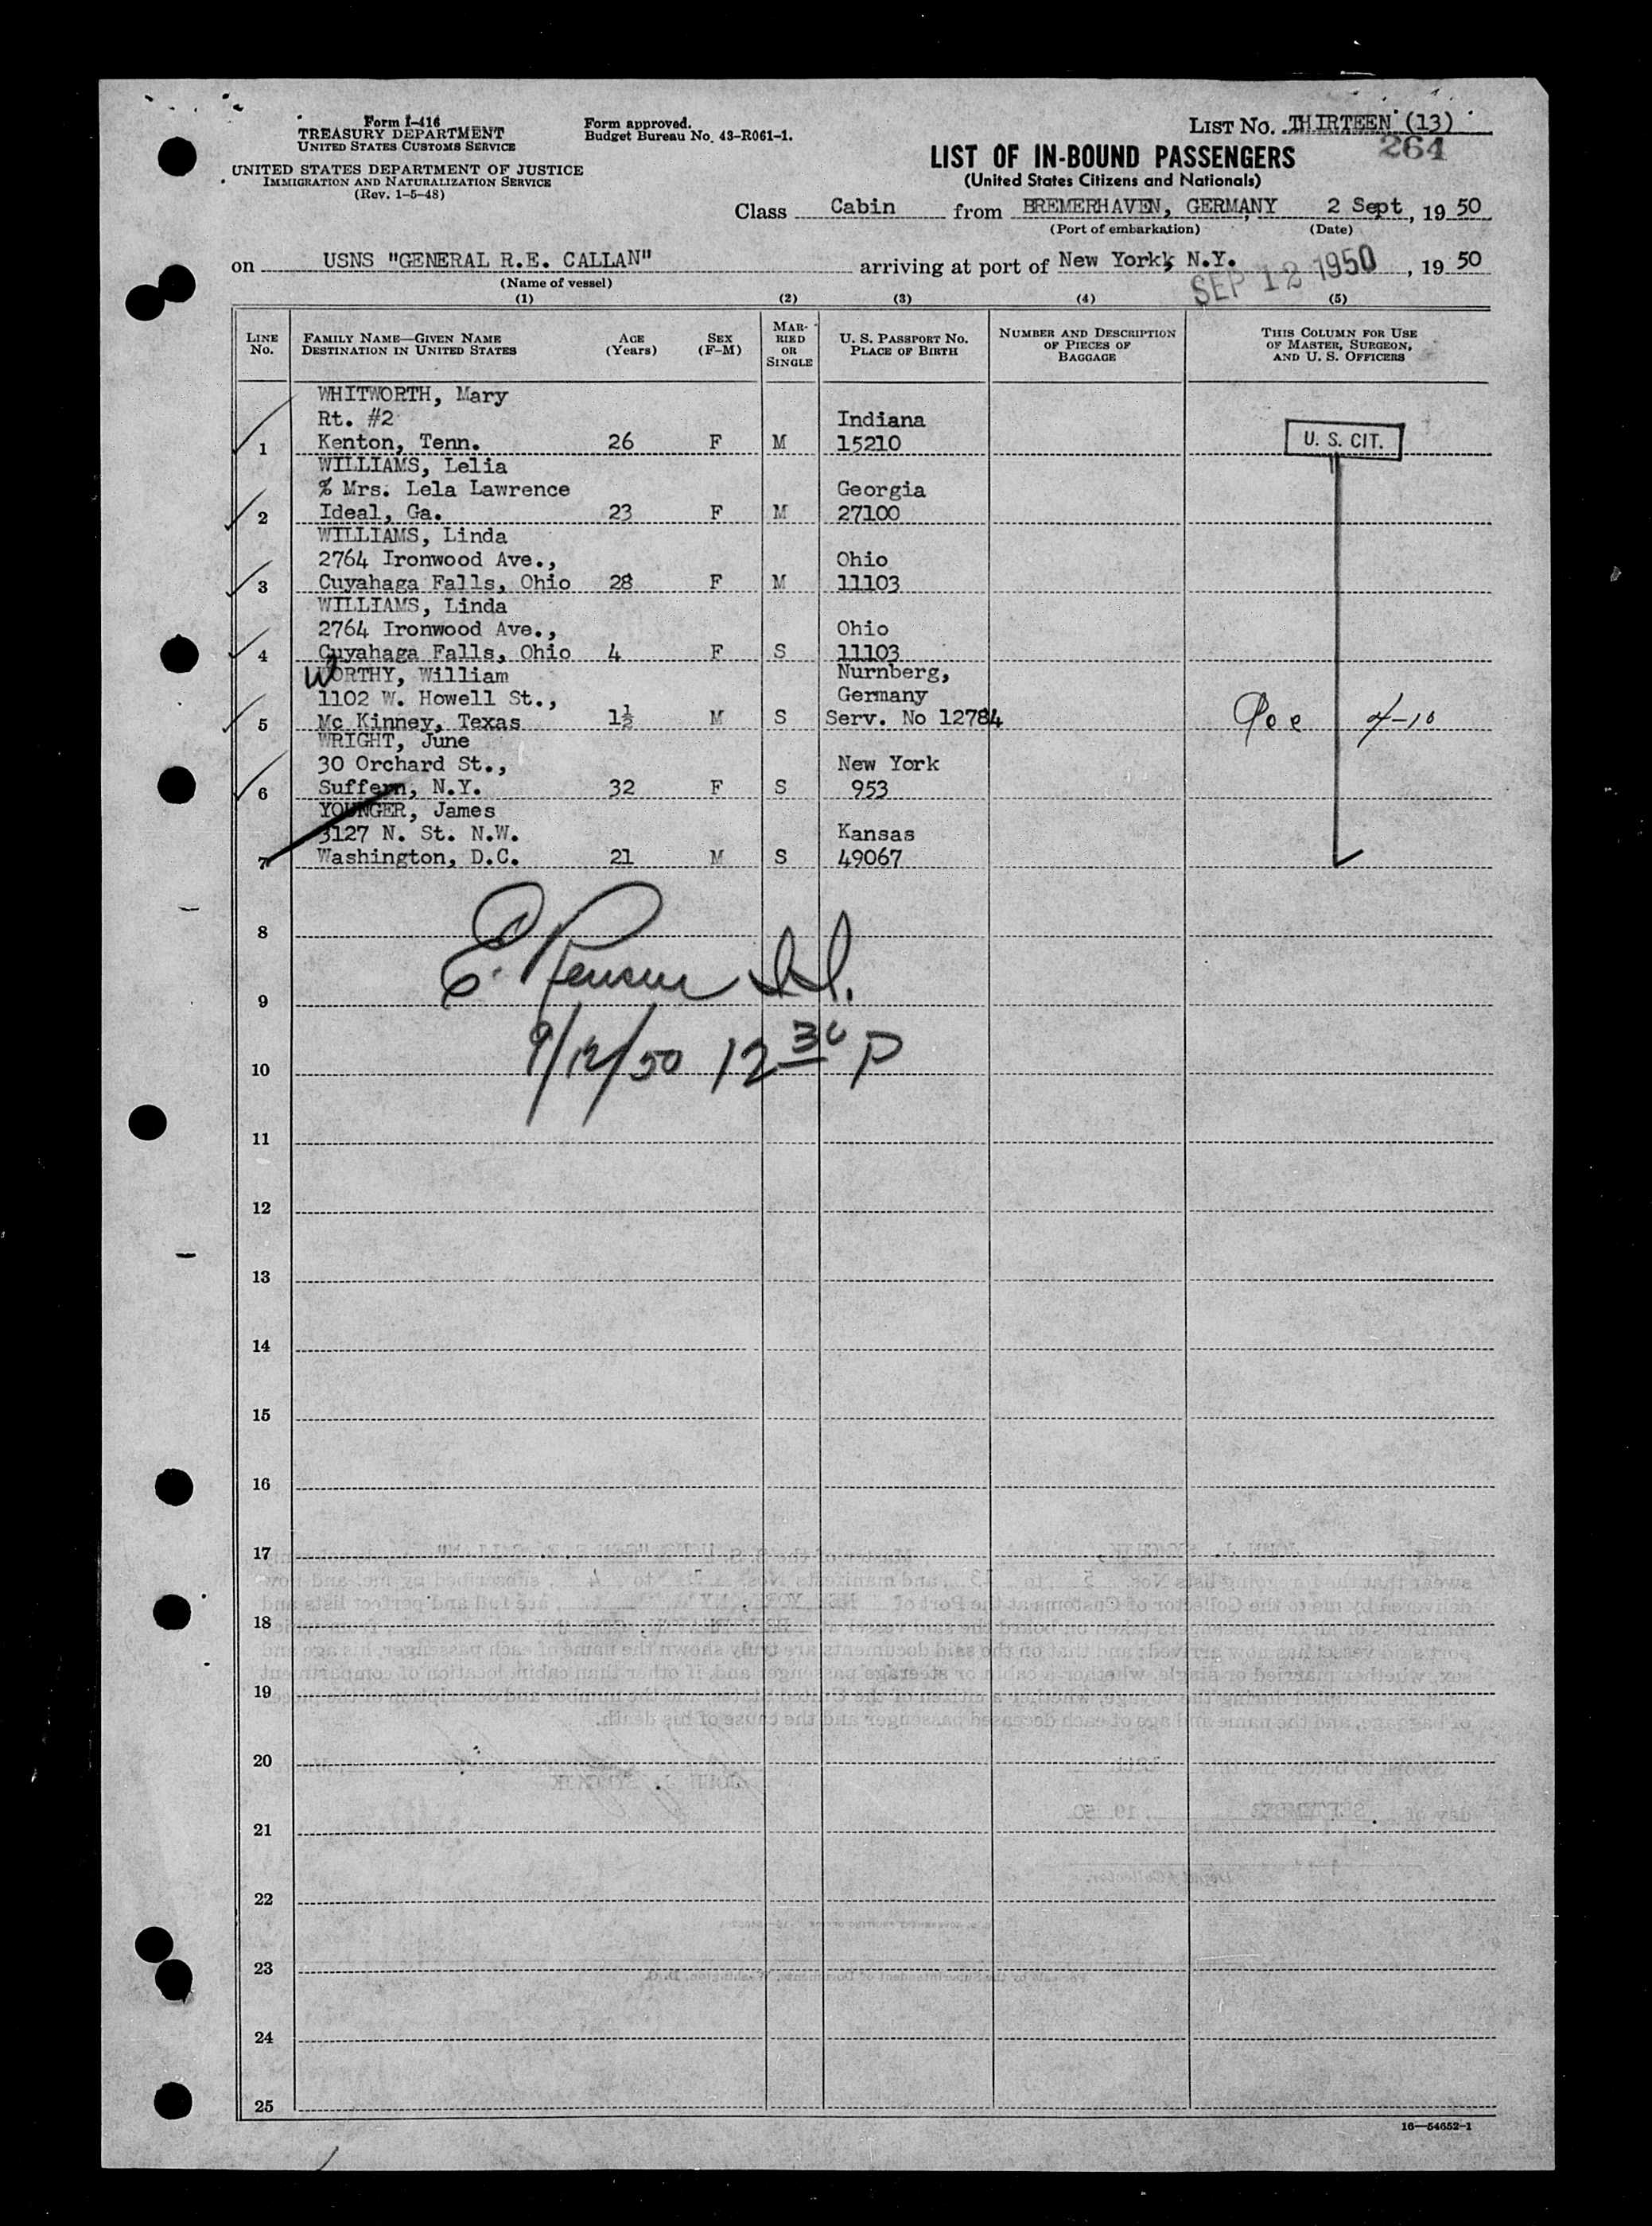 Form I-416
TREASURY DEPARTMENT
UNITED STATES CUSTOMS SERVICE
UNITED STATES DEPARTMENT OF JUSTICE
IMMIGRATION AND NATURALIZATION SERVICE
(Rev. 1-5-48)
Form approved.
Budget Bureau No. 43-R061-1.
LIST NO. THIRTEEN (13)
264
LIST OF IN-BOUND PASSENGERS
(United States Citizens and Nationals)
Class Cabin from BREMERHAVEN, GERMANY 2 Sept, 1950
(Port of embarkation) (Date)
on USNS "GENERAL R.E. CALLAN" arriving at port of New York, N.Y. SEP 12 1950, 1950
(Name of vessel)
(1) (2) (3) (4) (5)
LINE No. FAMILY NAME—GIVEN NAME DESTINATION IN UNITED STATES AGE (Years) SEX (F-M) MARRIED OR SINGLE U. S. PASSPORT NO. PLACE OF BIRTH NUMBER AND DESCRIPTION OF PIECES OF BAGGAGE THIS COLUMN FOR USE OF MASTER, SURGEON, AND U. S. OFFICERS
WHITWORTH, Mary
Rt. #2 Indiana
1 Kenton, Tenn. 26 F M 15210 U. S. CIT.
WILLIAMS, Lelia
% Mrs. Lela Lawrence Georgia
2 Ideal, Ga. 23 F M 27100
WILLIAMS, Linda
2764 Ironwood Ave., Ohio
3 Cuyahaga Falls, Ohio 28 F M 11103
WILLIAMS, Linda
2764 Ironwood Ave., Ohio
4 Cuyahaga Falls, Ohio 4 F S 11103
WORTHY, William Nurnberg,
1102 W. Howell St., Germany
5 Mc Kinney, Texas 1½ M S Serv. No 12784 4-10
WRIGHT, June
30 Orchard St., New York
6 Suffern, N.Y. 32 F S 953
YOUNGER, James
3127 N. St. N.W. Kansas
7 Washington, D.C. 21 M S 49067
8
9
9/12/50 12 30 P
10
11
12
13
14
15
16
17
18
19
20
21
22
23
24
25
16—54652-1